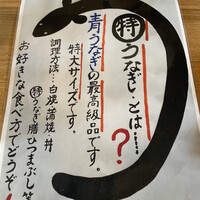 特うなぎ、とは…?
青うなぎの最高級品です。
特大サイズです。
調理方法…白焼 蒲焼 丼
特うなぎ膳 ひつまぶし等
お好きな食べ方でどうぞ!